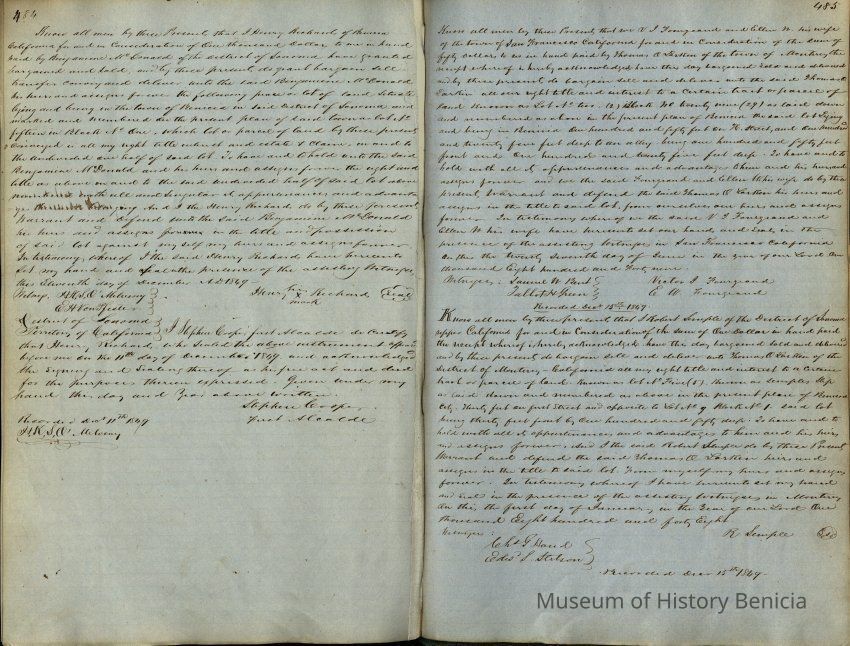 484
Know all men by these Presents, that I Henry Richard of Sonoma
California for and in Consideration of One thousand Dollars to me in hand
paid by Benjamine McDonald of the district of Sonoma have granted
bargained and sold, and by these presents do grant bargain sell
transfer convey and deliver unto the said Benjamine McDonald
his heirs and assigns forever the following piece or lot of land situate
lying and being in the town of Benicia in said District of Sonoma and
marked and numbered on the present plan of said town as lot No
fifteen in Block No One, which lot or parcel of land by these presents
Conveyed is all my right title interest and estate & claim in and to
the undivided one half of said lot. To have and to hold unto the said
Benjamine McDonald and his heirs and assigns forever the right and
title as above and to the said undivided half of said lot above
with all and singular it appurtenances and advantages
And I the Henry Richard do by these presents
Warrant and defend unto the said Benjamine McDonald
his heirs and assigns forever in the title and possession
of said lot against my self my heirs and assigns forever
In testimony whereof I the said Henry Richard have hereunto
set my hand and seal at the presence of the assisting Witnesses
this Eleventh day of December A.D. 1849
Henry his Richard Seal
X
mark
District of Sonoma
Territory of California I Stephen Cooper first Alcalde do Certify
that Henry Richard, who sealed the above instrument appeared
before me on the 11th day of December 1849 and acknowledged
the Signing and Sealing thereof as his free act and deed
for the purposes therein expressed. Given under my
hand the day and Year above written.
Stephen Cooper
first Alcalde
Recorded Dec 11th 1849
485
Know all men by these Presents, that we V J Fourgeaud and Ellen W. his wife
of the town of San Francisco California for and in Consideration of the sum of
fifty dollars to us in hand paid by Thomas O Larkin of the town of Monterey, the
receipt whereof is hereby acknowledged have this day bargained sold and delivered
and by these presents do bargain sell and deliver unto the said Thomas O
Larkin all our right title and interest to a certain tract or parcel of
land known as Lot No two (2) Block No twenty nine (29) as laid down
and numbered as above in the present plan of Benicia the said lot lying
and being in Benicia One hundred and fifty feet on Street, and One hundred
and twenty five feet deep to an alley being one hundred and fifty feet
front and One hundred and twenty five feet deep. To have and to
hold with all it appurtenances and advantages to him and his heirs
assigns forever and we the said Fourgeaud and Ellen W his wife do by these
presents Warrant and defend the said Thomas O Larkin his heirs and
assigns in the title to said lot, from ourselves, our heirs and assigns
forever. In testimony whereof we the said V J Fourgeaud and
Ellen W his wife have hereunto set our hand and seal in the
presence of the assisting Witnesses in San Francisco California
on this the twenty Seventh day of June in the year of our Lord One
thousand Eight hundred and forty nine.
Witnesses: Samuel W. Victor J Fourgeaud
Talbot H Green E. W. Fourgeaud
Recorded Dec 15th 1849
Know all men by these present that I Robert Semple of the District of Sonoma
Upper California for and in Consideration of the sum of One Dollar in hand paid
the receipt whereof is hereby acknowledged have this day bargained sold and delivered
and by these presents do bargain sell and deliver unto Thomas O Larkin of the
District of Monterey California all my right title and interest to a certain
tract or parcel of land known as Lot No Five (5). Known as Semples
as laid down and numbered as above in the present place of Benicia
City. Thirty feet on first Street and opposite to Lot No 9 Block No 1. said lot
being thirty feet front by One hundred and fifty deep. To have and to
hold with all it appurtenances and advantages to him and his heirs
and assigns forever. And I the said Robert Semple do by these Presents
Warrant and defend the said Thomas O Larkin heirs and
assigns in the title to said lot. From myself my heirs and assigns
forever. In testimony whereof I have hereunto set my hand
and Seal in the presence of the assisting Witnesses in Monterey
on this the first day of January in the Year of our Lord One
thousand Eight hundred and forty Eight
Witnesses: R Semple Seal
Recorded Dec 15th 1849
Museum of History Benicia